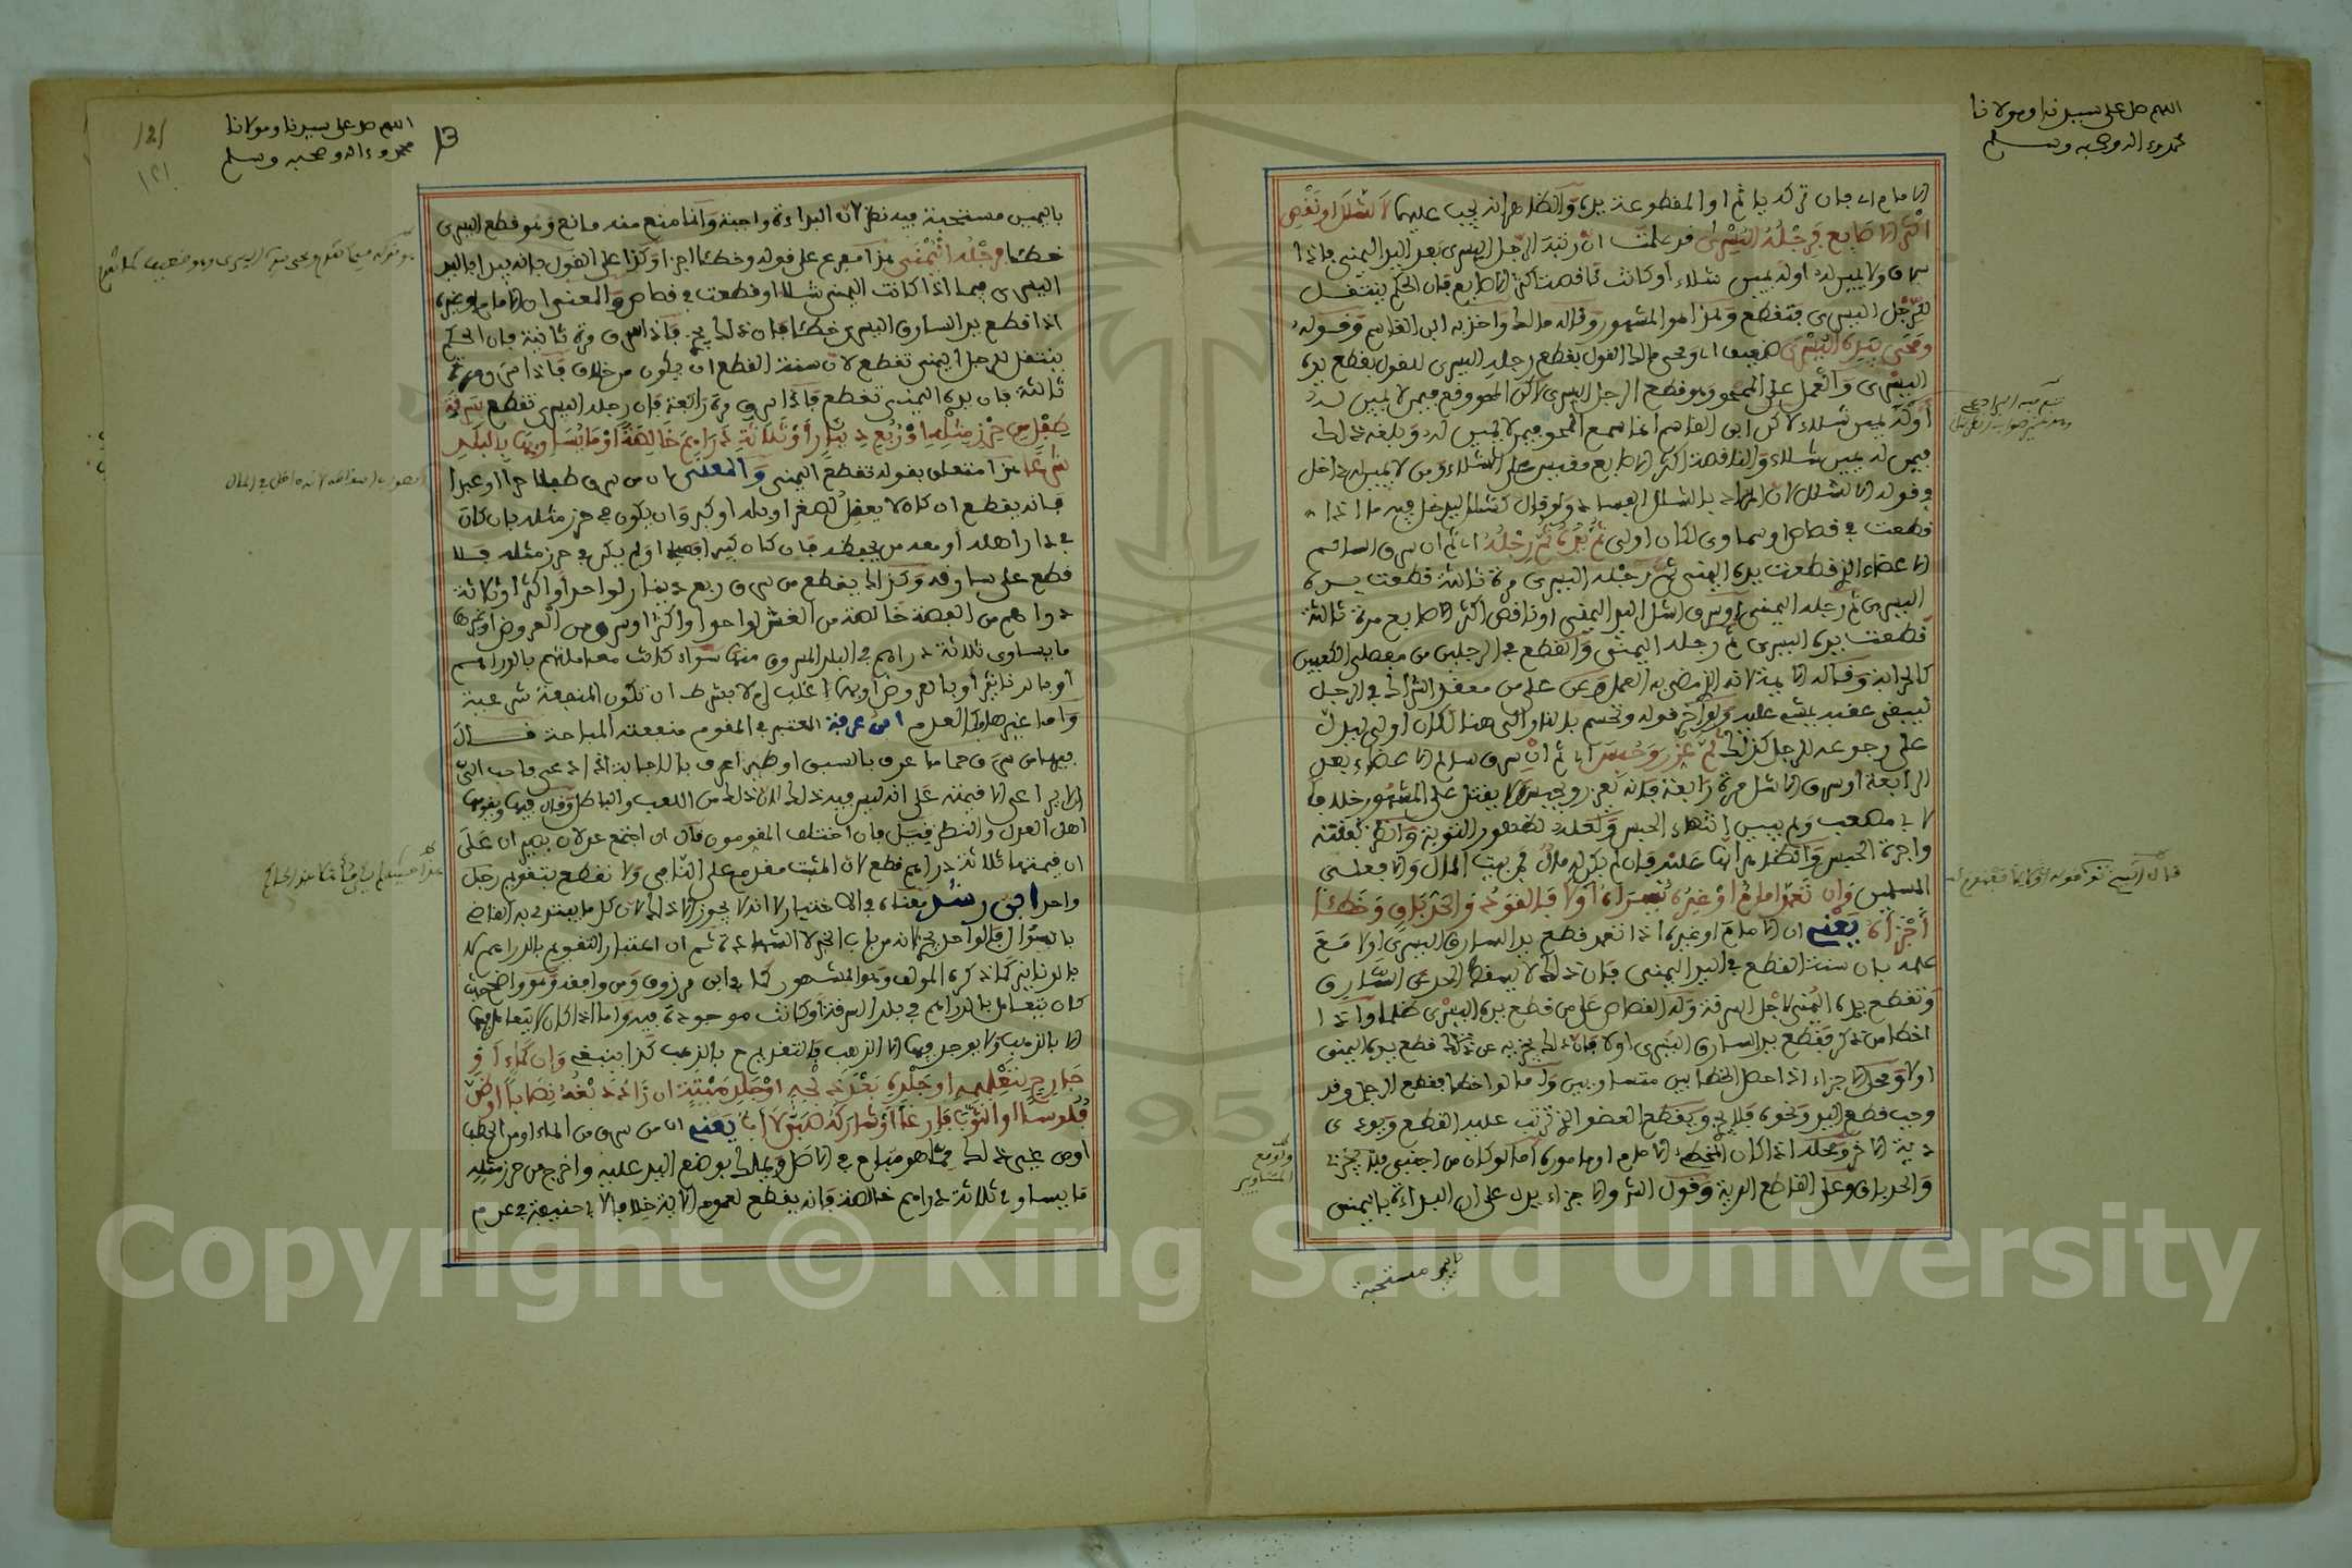 اللهم صل على سيدنا ومولانا
محمد وءاله وصحبه وسلم
الامام اي فان تركه ياثم او المقطوعة يده والظاهر انه يجب عليهما الا لشلل او نقص
اكثر الاصابع فرجله اليسرى قد علمت ان رتبة الرجل اليسرى بعد اليد اليمنى فاذا
سرق ولا يمين له او له يمين شلاء او كانت ناقصة اكثر الاصابع فان الحكم ينتقل
للرجل اليسرى فتقطع وهذا هو المشهور وقاله مالك واخذ به ابن القاسم وقوله
ومحى ليده اليسرى ضعيف اي ومحى مالك القول بقطع رجله اليسرى للقول بقطع يده
اليسرى والعمل على الممحو وهو قطع الرجل اليسرى لاكن المحو وقع فيمن لا يمين له
او له يمين شلاء لاكن ابن القاسم انما سمع المحو فيمن لا يمين له وبلغه ذلك
فيمن له يمين شلاء والناقصة اكثر الاصابع مقيس على الشلاء ومن لا يمين له داخل
في قوله الا لشلل لان المراد بالشلل الفساد ولو قال كشلل ليدخل فيه ما اذا
قطعت في قصاص او سماوي لكان اولى ثم يده ثم رجله اي ثم ان سرق السالم
الاعضاء الذي قطعت يده اليمنى ثم رجله اليسرى مرة ثالثة قطعت يده
اليسرى ثم رجله اليمنى او سرق اشل اليد اليمنى او ناقص اكثر الاصابع مرة ثالثة
قطعت يده اليسرى ثم رجله اليمنى والقطع في الرجلين من مفصلي الكعبين
كالحرابة وقاله الايمة لانه الذي مضى به العمل وعن علي من معقد الشراك في الرجل
ليبقى عقبه يمشي عليه ولو اخر قوله وتحسم بالنار الى هنا لكان اولى ليدل
على رجوعه للرجل كذلك ثم عزر وحبس اي ثم ان سرق سالم الاعضاء بعد
الرابعة او سرق الاشل مرة رابعة فانه يعزر ويحبس ولا يقتل على المشهور خلافا
لابي مصعب ولم يبين انتهاء الحبس ولعله لظهور التوبة وانظر نفقته
واجرة الحبس والظاهر انها عليه فان لم يكن له مال فمن بيت المال والا فعلى
المسلمين وان تعمد امام او غيره يسراه اولا فالقود والحد باق وخطأ
أجزأ يعني ان الامام او غيره اذا تعمد قطع يد السارق اليسرى اولا مع
علمه بان سنة القطع في اليد اليمنى فان ذلك لا يسقط الحد عن السارق
وتقطع يده اليمنى لاجل السرقة وله القصاص على من قطع يده اليسرى ظلما واذا
اخطا من ذكر فقطع يد السارق اليسرى اولا فان ذلك يجزيه عن قطع يده اليمنى
اولا ومحل الاجزاء اذا حصل الخطأ بين متساويين واما لو اخطا بقطع الرجل وقد
وجب قطع اليد ونحوه فلا يجزي ويقطع العضو الذي ترتب عليه القطع ويودى
دية الاخر ومحله اذا كان المخطئ الامام او مامورة اما لو كان من اجنبي فلا يجزئ
والحد باق وعلى القاطع الدية وقول الشـ والاجزاء يدل على ان البداءة باليمنى
باليمين مستحبة
اللهم صل على سيدنا ومولانا
محمد وءاله وصحبه وسلم
13
121
١٢١
باليمين مستحبة فيه نظر لان البداءة واجبة وانما منع منه مانع وهو قطع اليسرى
خطئا فرجله اليمنى هذا مفرع على قوله وخطئا اجزا وكذا على القول بانه يبدا باليد
اليسرى فيما اذا كانت اليمنى شلاء او قطعت في قصاص والمعنى ان الامام او غيره
اذا قطع يد السارق اليسرى خطئا فان ذلك يجزي فاذا سرق مرة ثانية فان الحكم
ينتقل لرجله اليمنى تقطع لان سنة القطع ان يكون من خلاف فاذا سرق مرة
ثالثة فان يده اليمنى تقطع فاذا سرق مرة رابعة فان رجله اليسرى تقطع بسرقة
طفل من حرز مثله او ربع دينار او ثلاثة دراهم خالصة او ما يساويها بالبلد
شرعا هذا متعلق بقوله تقطع اليمنى والمعنى ان من سرق طفلا حرا او عبدا
فانه يقطع ان كان لا يعقل لصغر او بله او كبر وان يكون في حرز مثله بان كان
في دار اهله او معه من يحفظه فان كان كبيرا فصيحا او لم يكن في حرز مثله فلا
قطع على سارقه وكذلك يقطع من سرق ربع دينار لواحد او اكثر او ثلاثة
دراهم من الفضة خالصة من الغش لواحد او اكثر او سرق من العروض او غيرها
ما يساوي ثلاثة دراهم في البلد المسروق منها سواء كانت معاملتهم بالدراهم
او بالدنانير او بالعروض او بهما اغلب اذ لا يشترط ان تكون المنفعة شرعية
واما غيرها فكالعدم ابن عرفة المعتبر في المقوم منفعته المباحة قال
فيها من سرق حماما عرف بالسبق او طيرا عرف بالاجابة اذا دعي فاحب الي
ان لا يراعى الا قيمته على انه ليس فيه ذلك لان ذلك من اللعب والباطل وقال فيها ويقومها
اهل العدل والنظر قيل فان اختلف المقومون قال ان اجتمع عدلان بصيران على
ان قيمتها ثلاثة دراهم قطع لان المثبت مقدم على النافي ولا تقطع بتقويم رجل
واحد ابن رشد معناه في الاختيار لا انه لا يجوز الا ذلك لان كل ما يبتدئ به القاضي
بالسؤال فالواحد يجزئ لانه من باب الخبر لا الشهادة ثم ان اعتبار التقويم بالدراهم لا
بالدنانير كما ذكره المولف وهو المشهور كما في ابن مرزوق ومن وافقه وهو واضح حيث
كان يتعامل بالدراهم في بلد السرقة او كانت موجودة فيه واما اذا كان لا يتعامل فيها
الا بالذهب ولا يوجد فيها الا الذهب فالتقويم ح بالذهب كذا ينبغي وان كماء او
جارح لتعليمه او جلده بعد ذبحه او جلد ميتة ان زاد دبغه نصابا او ظن
فلوسا او الثوب فارغا او شارك صبي لا اب يعني ان من سرق من الماء او من الحطب
او من غير ذلك مما هو مباح في الاصل ويملك بوضع اليد عليه واخرج من حرز مثله
ما يساوي ثلاثة دراهم خالصة فانه يقطع لعموم الاية خلافا لابي حنيفة في عدم
Copyright © King Saud University